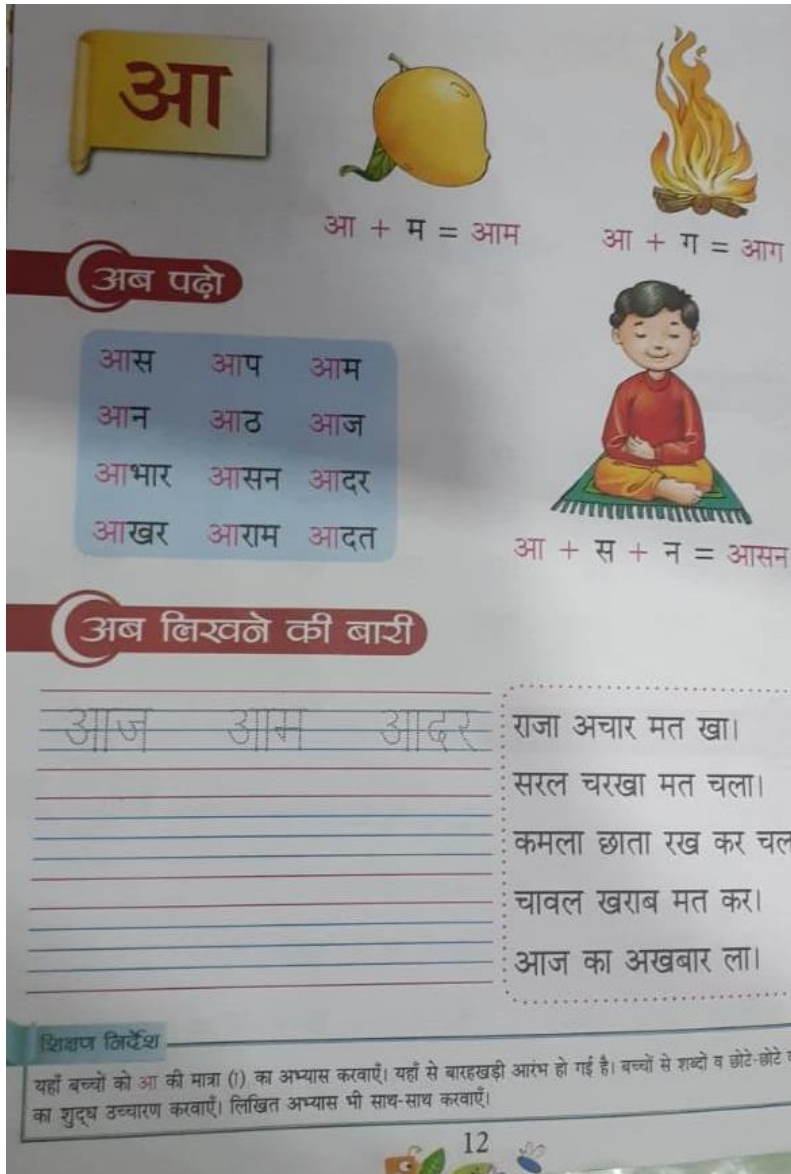 आ
आ + म = आम
आ + ग = आग
अब पढ़ो
आस आप आम
आन आठ आज
आभार आसन आदर
आखर आराम आदत
आ + स + न = आसन
अब लिखने की बारी
आज आम आदर
राजा अचार मत खा।
सरल चरखा मत चला।
कमला छाता रख कर चल
चावल खराब मत कर।
आज का अखबार ला।
शिक्षण निर्देश
यहाँ बच्चों को आ की मात्रा (ा) का अभ्यास करवाएँ। यहाँ से बारहखड़ी आरंभ हो गई है। बच्चों से शब्दों व छोटे-छोटे
का शुद्ध उच्चारण करवाएँ। लिखित अभ्यास भी साथ-साथ करवाएँ।
12